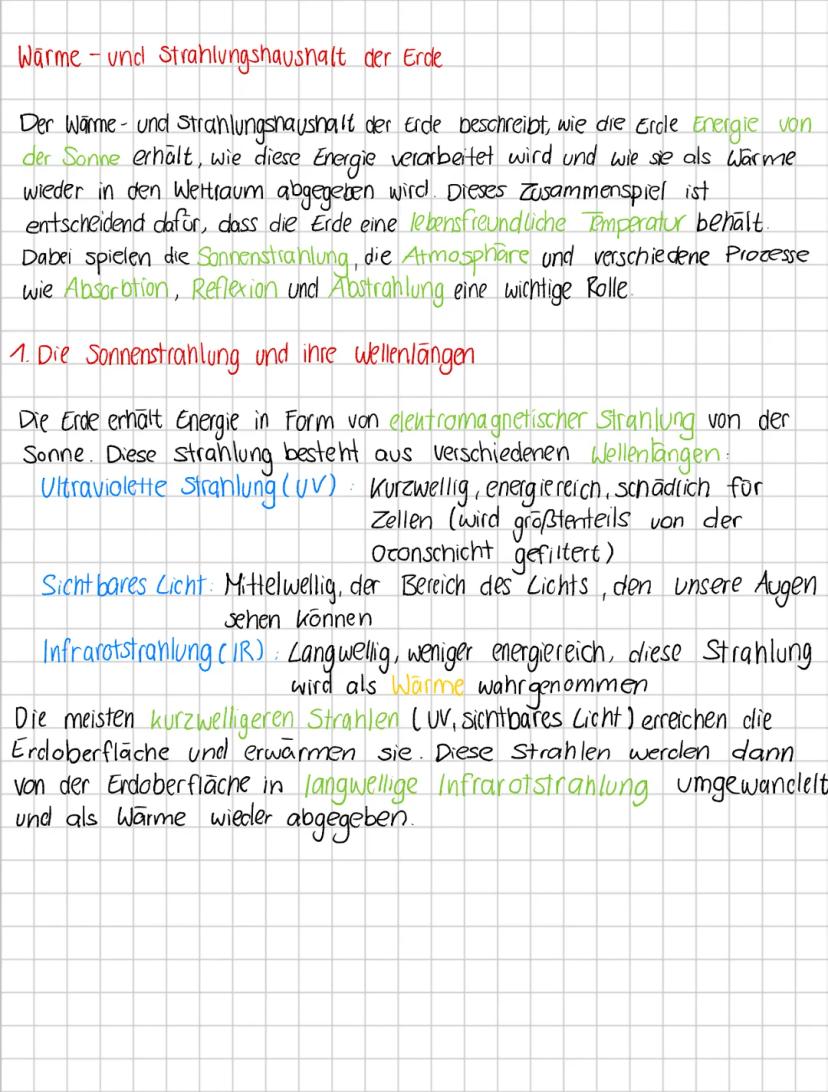 Wärme - und Strahlungshaushalt der Erde
Der Wärme- und Strahlungshaushalt der Erde beschreibt, wie die Erde Energie von
der Sonne erhält, wie diese Energie verarbeitet wird und wie sie als Wärme
wieder in den Weltraum abgegeben wird. Dieses Zusammenspiel ist
entscheidend dafür, dass die Erde eine lebensfreundliche Temperatur behält.
Dabei spielen die Sonnenstrahlung, die Atmosphäre und verschiedene Prozesse
wie Absorbtion, Reflexion und Abstrahlung eine wichtige Rolle.
1. Die Sonnenstrahlung und ihre Wellenlängen
Die Erde erhält Energie in Form von elektromagnetischer Strahlung von der
Sonne. Diese Strahlung besteht aus verschiedenen Wellenlängen:
Ultraviolette Strahlung (UV): Kurzwellig, energiereich, schädlich für
Zellen (wird größtenteils von der
Ozonschicht gefiltert)
Sichtbares Licht: Mittelwellig, der Bereich des Lichts, den unsere Augen
sehen können
Infrarotstrahlung (IR): Langwellig, weniger energiereich, diese Strahlung
wird als Wärme wahrgenommen
Die meisten kurzwelligeren Strahlen (UV, sichtbares Licht) erreichen die
Erdoberfläche und erwärmen sie. Diese Strahlen werden dann
von der Erdoberfläche in langwellige Infrarotstrahlung umgewandelt
und als Wärme wieder abgegeben.